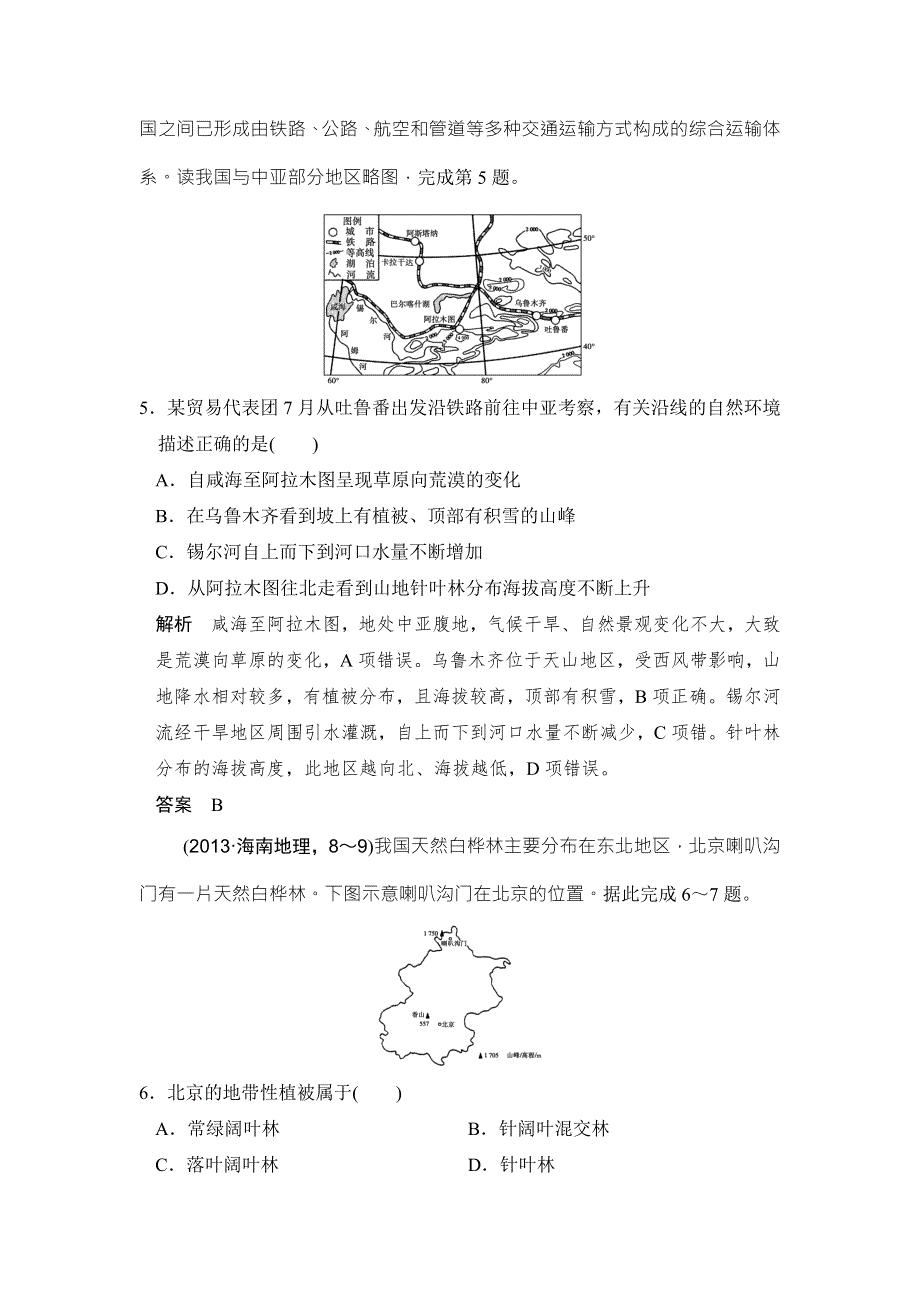 国之间已形成由铁路、公路、航空和管道等多种交通运输方式构成的综合运输体
系。读我国与中亚部分地区略图，完成第 5 题。
图例
城 市
铁 路
等高线
湖 泊
河 流
阿斯塔纳
卡拉干达
巴尔喀什湖
乌鲁木齐
咸海
锡
尔
河
阿拉木图
吐鲁番
阿
姆
河
50°
40°
60°
80°
5．某贸易代表团 7 月从吐鲁番出发沿铁路前往中亚考察，有关沿线的自然环境
描述正确的是(　　)
A．自咸海至阿拉木图呈现草原向荒漠的变化
B．在乌鲁木齐看到坡上有植被、顶部有积雪的山峰
C．锡尔河自上而下到河口水量不断增加
D．从阿拉木图往北走看到山地针叶林分布海拔高度不断上升
解析　咸海至阿拉木图，地处中亚腹地，气候干旱、自然景观变化不大，大致
是荒漠向草原的变化，A 项错误。乌鲁木齐位于天山地区，受西风带影响，山
地降水相对较多，有植被分布，且海拔较高，顶部有积雪，B 项正确。锡尔河
流经干旱地区周围引水灌溉，自上而下到河口水量不断减少，C 项错。针叶林
分布的海拔高度，此地区越向北、海拔越低，D 项错误。
答案　B
(2013·海南地理，8～9)我国天然白桦林主要分布在东北地区，北京喇叭沟
门有一片天然白桦林。下图示意喇叭沟门在北京的位置。据此完成 6～7 题。
1 750
喇叭沟门
香山
557
北京
1 705 山峰/高程/m
6．北京的地带性植被属于(　　)
A．常绿阔叶林　　B．针阔叶混交林
C．落叶阔叶林　　D．针叶林